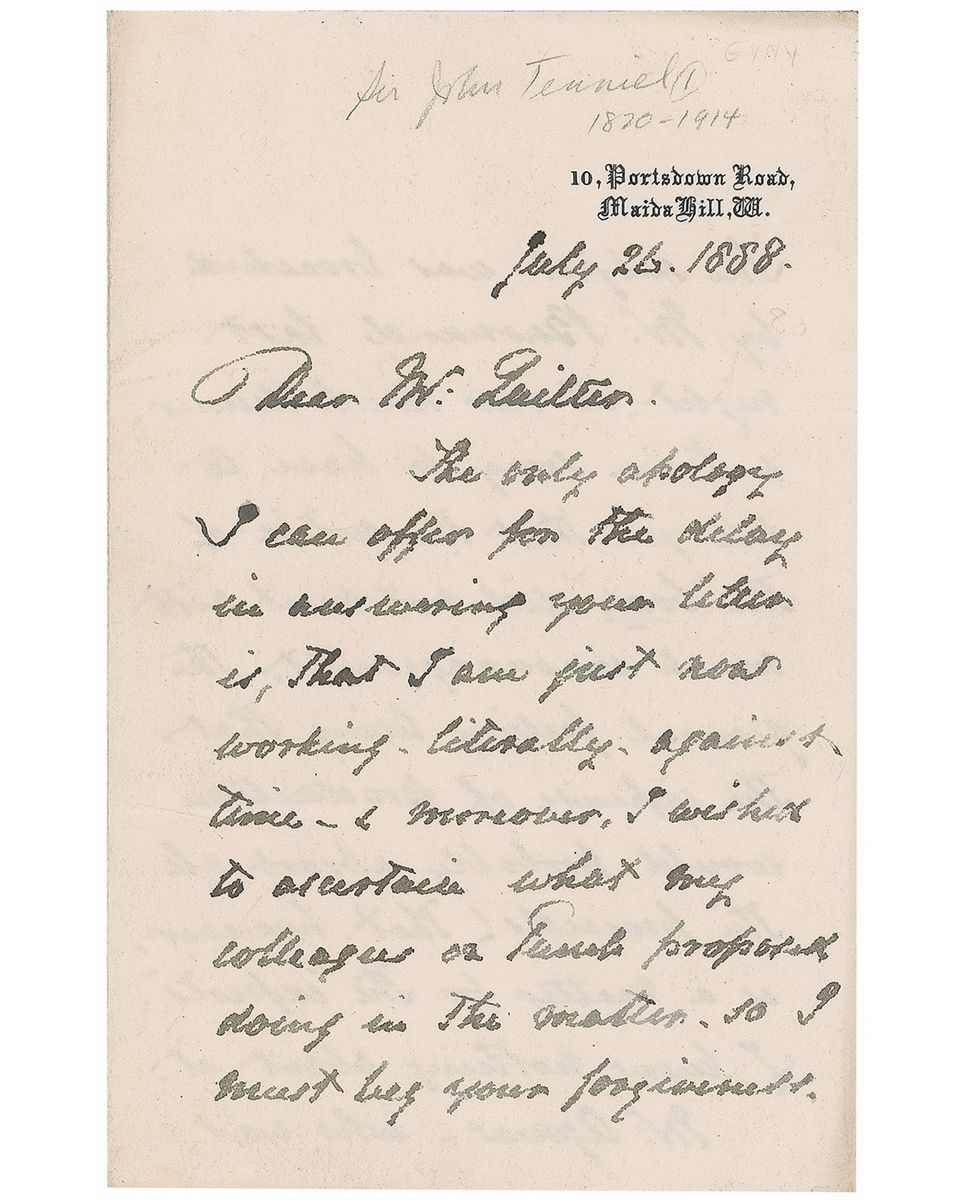 Sir John Tenniel
1820-1914
10, Portsdown Road,
Maida Hill, W.
July 26. 1888.
Dear Mr. Quilter.
The only apology
I can offer for the delay
in answering your letter
is, that I am just now
working - literally - against
time - & moreover, I wished
to ascertain what my
colleagues on Punch proposed
doing in the matter - so I
must beg your forgiveness.